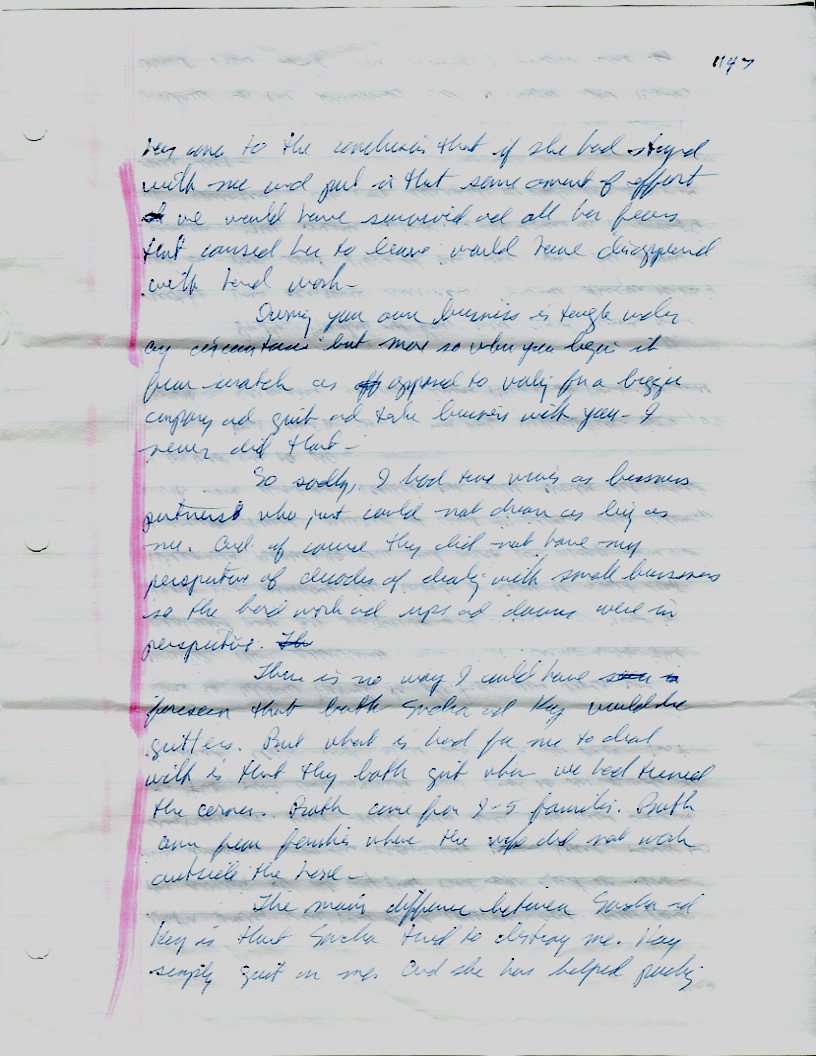 "47
has come to the conclusion that if she had stayed
with me and put in that same amount of effort
we would have survived and all her fears
that caused her to leave would have disappeared
with hard work -
Owning your own business is tough under
any circumstances but more so when you begin it
from scratch as opposed to working for a bigger
company and quit and take business with you - I
never did that -
So sadly, I had two wives as business
partners who just could not dream as big as
me. And of course they did not have my
perspective of decades of dealing with small businesses
so the hard work and ups and downs were in
perspective. Th
There is no way I could have seen in
foreseen that both Sascha and Kay would be
quitters. But what is hard for me to deal
with is that they both quit when we had turned
the corner. Both came from 9-5 families. Both
came from families where the wife did not work
outside the home -
The main difference between Sascha and
Kay is that Sascha tried to destroy me. Kay
simply quit on me. And she has helped